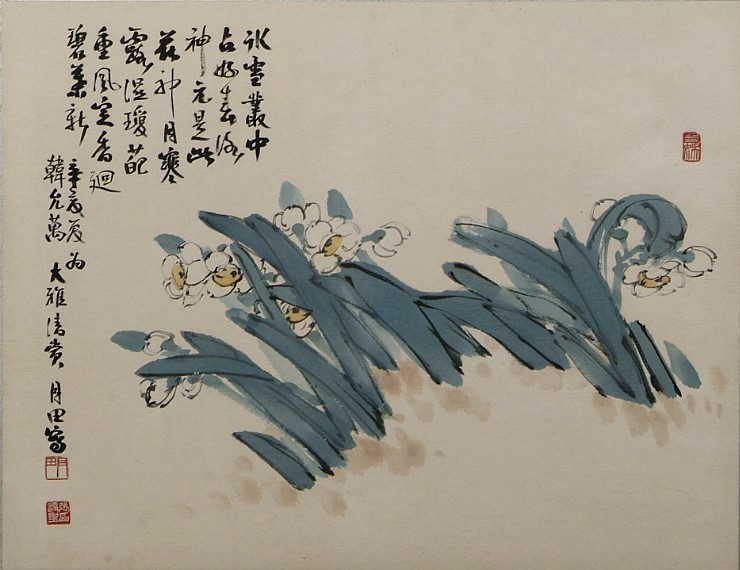 氷雪叢中
占好春洛
神元是此
花神月寒
露湿瓊葩
重風定香廻
碧葉新
辛亥夏為
韓允萬 大雅清賞 月田寫
月田